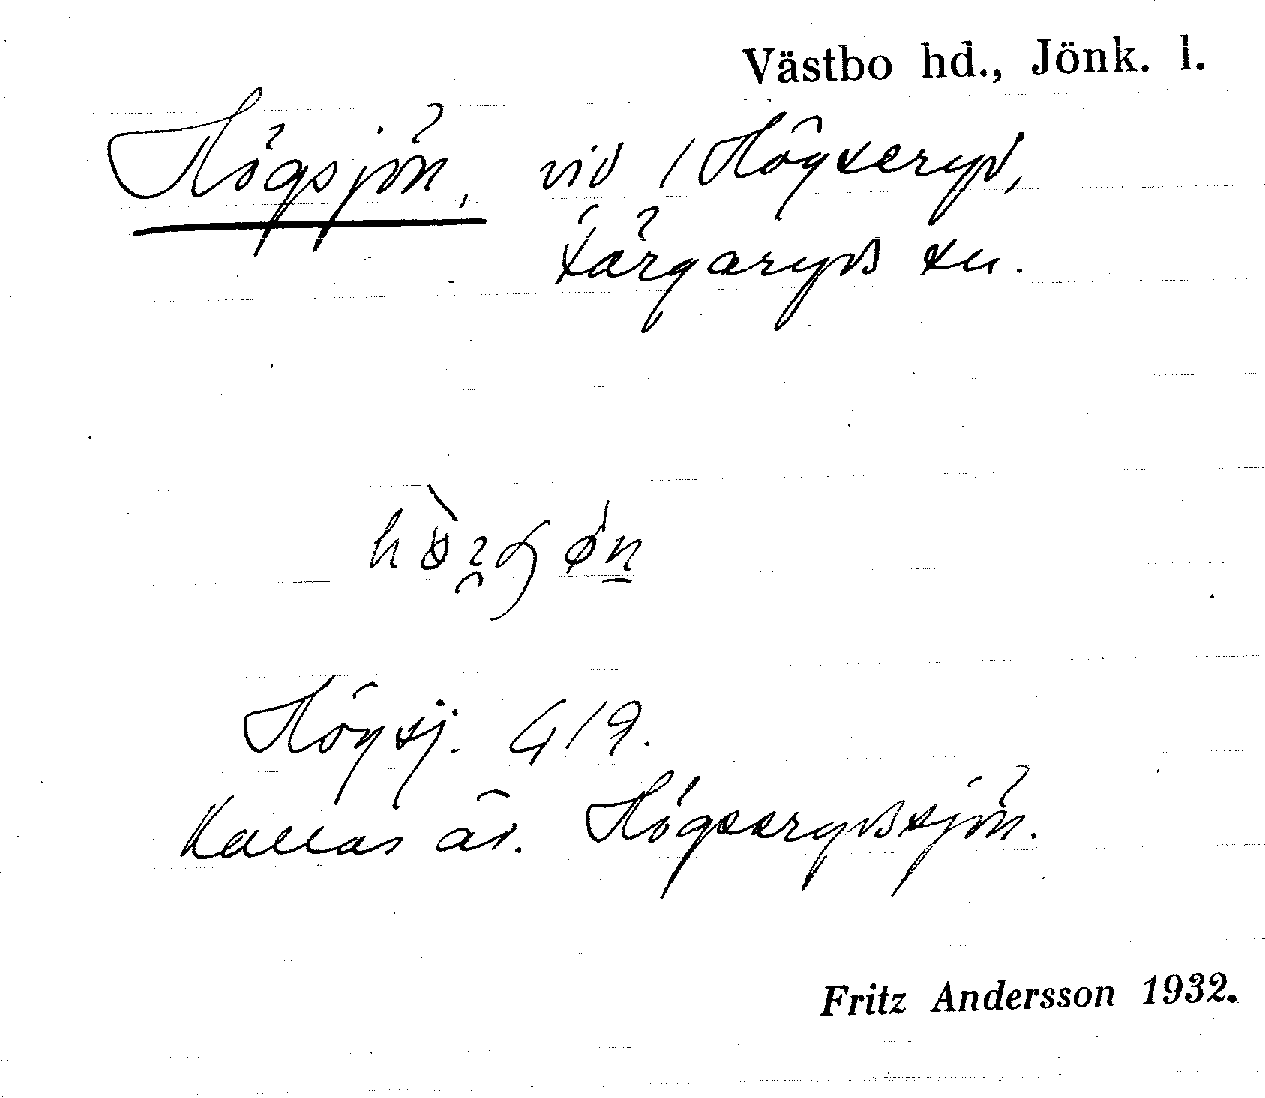 Västbo hd., Jönk. l.
Högsjön, vid / Högseryd,
Färgaryds sn.
Högsj. G 19.
Kallas äv. Högserydssjön.
Fritz Andersson 1932.